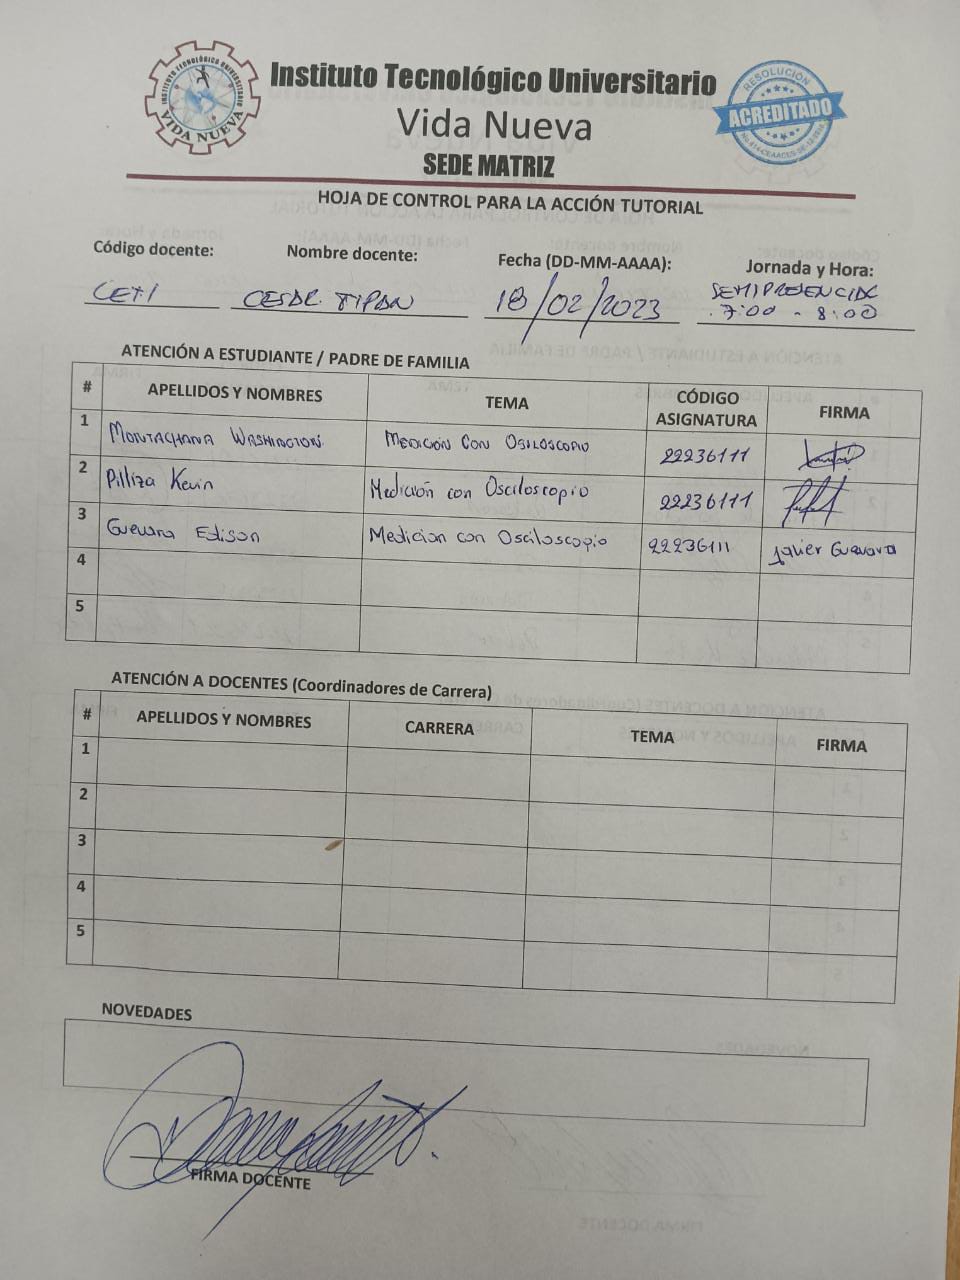 INSTITUTO TECNOLÓGICO UNIVERSITARIO
VIDA NUEVA
Instituto Tecnológico Universitario
Vida Nueva
SEDE MATRIZ
RESOLUCIÓN
ACREDITADO
HOJA DE CONTROL PARA LA ACCIÓN TUTORIAL
Código docente: Nombre docente: Fecha (DD-MM-AAAA): Jornada y Hora:
CETI CESAR TIPAN 18/02/2023 SEMIPRESENCIAL
7:00 - 8:00
ATENCIÓN A ESTUDIANTE / PADRE DE FAMILIA
# APELLIDOS Y NOMBRES TEMA CÓDIGO ASIGNATURA FIRMA
1 MONTACHANA WASHINGTON MEDICIÓN CON OSILOSCOPIO 22236111
2 Pilliza Kevin Medición con Osciloscopio 22236111
3 Guevara Edison Medicion con Osciloscopio 22236111 Javier Guevara
4
5
ATENCIÓN A DOCENTES (Coordinadores de Carrera)
# APELLIDOS Y NOMBRES CARRERA TEMA FIRMA
1
2
3
4
5
NOVEDADES
FIRMA DOCENTE